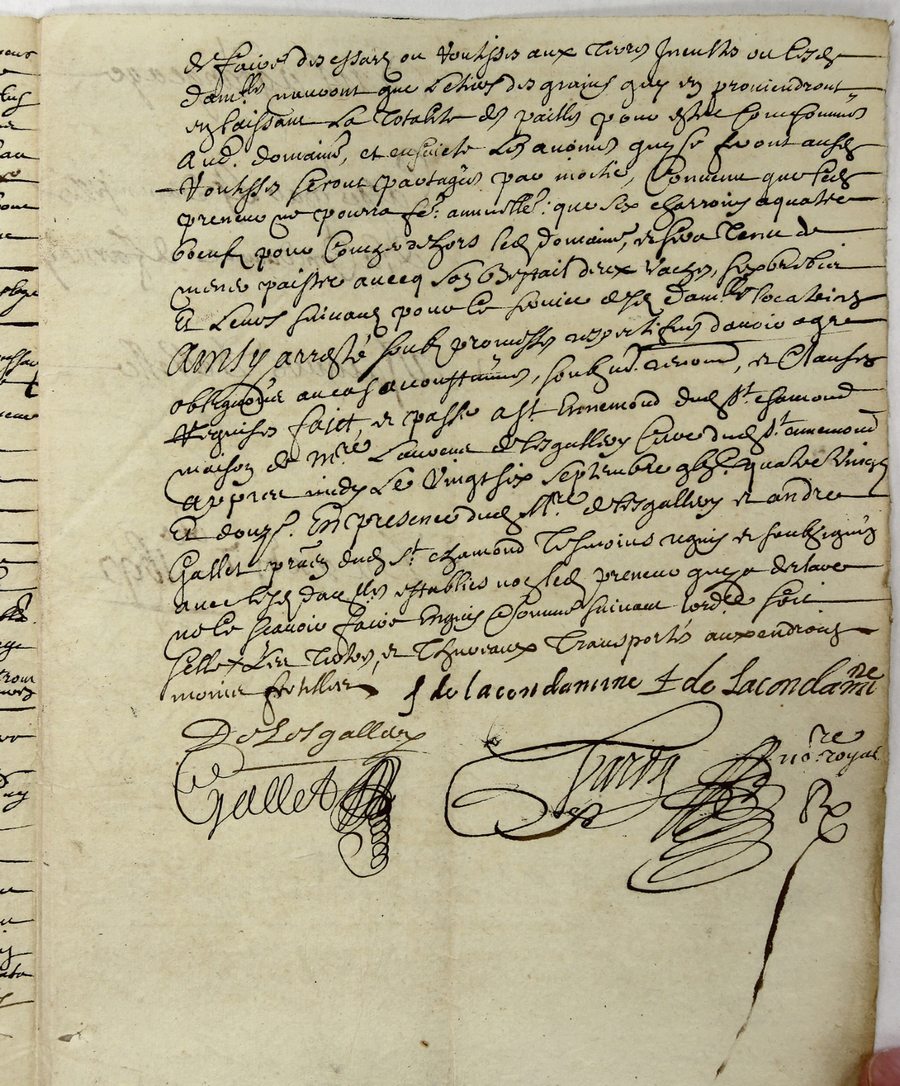 de faire des essars ou Voutisses aux terres Incultes ou lesd
dam.lles n'auront que le tiers des grains quy en proviendront
en laissant la totalite des pailles pour estre Consommées
Aud. domaine, et ensuite les avoines quy se feront ausd
Voutisses seront partagées par moitié, Convenu que led
preneur ne pourra fe. annuelle. que six charrois a quatre
boeufs pour Conge dehors led domaine, et sera tenu de
mener paistre avecq son Bestail deux vaches, six brebis
Et leurs suivans pour le service desd dam.lles locatrices
Ainsy arresté soubz promesses respectifves d'avoir agre
obligaõns au cas accoustumées, soubz ren͠, et Clauses
Requises fait, et passé a St. Ennemond dud St. chamond
maison de Mre Laurens delesgallery Curé dud St. annemond
appres midy Le Vingt six septembre gbjc. quatre Vingt
Et douze. En presence dud Mre. delesgallery et andre
Gallet pratn dud St. chamond tesmoins requis et soubzsignés
avec lesd dam.lles establies non led preneur quy a declaré
ne le scavoir faire Enquis et somme suivant lordce
selle et Les
et Chuveaux Transportés aux endroits
moins fertilles
J de lacondamine J de Lacondamine
DeLesgallery
Gallet
nore. royal